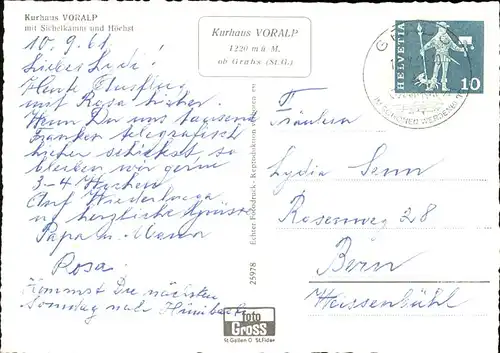 Kurhaus VORALP
mit Sichelkamm und Höchst
10.9.61
Liebes Lydi!
Heute Ausflug
mit Rosa hieher.
Wenn Du uns tausend
Franken telegrafisch
hieher schickst so
bleiben wir gerne
3-4 Wochen
Auf Wiedersehen
u. herzliche Grüsse
Papa u. Mama
Rosa.
Kommst Du nächsten
Sonntag nach
Kurhaus VORALP
1220 m ü. M.
ob Grabs (St.G.)
HELVETIA
10
Echter Fotodruck-
25978
Fräulein
Lydia Senn
Rosenweg 28
Bern
Weissenbühl
foto
GROSS
St. Gallen O St. Fiden